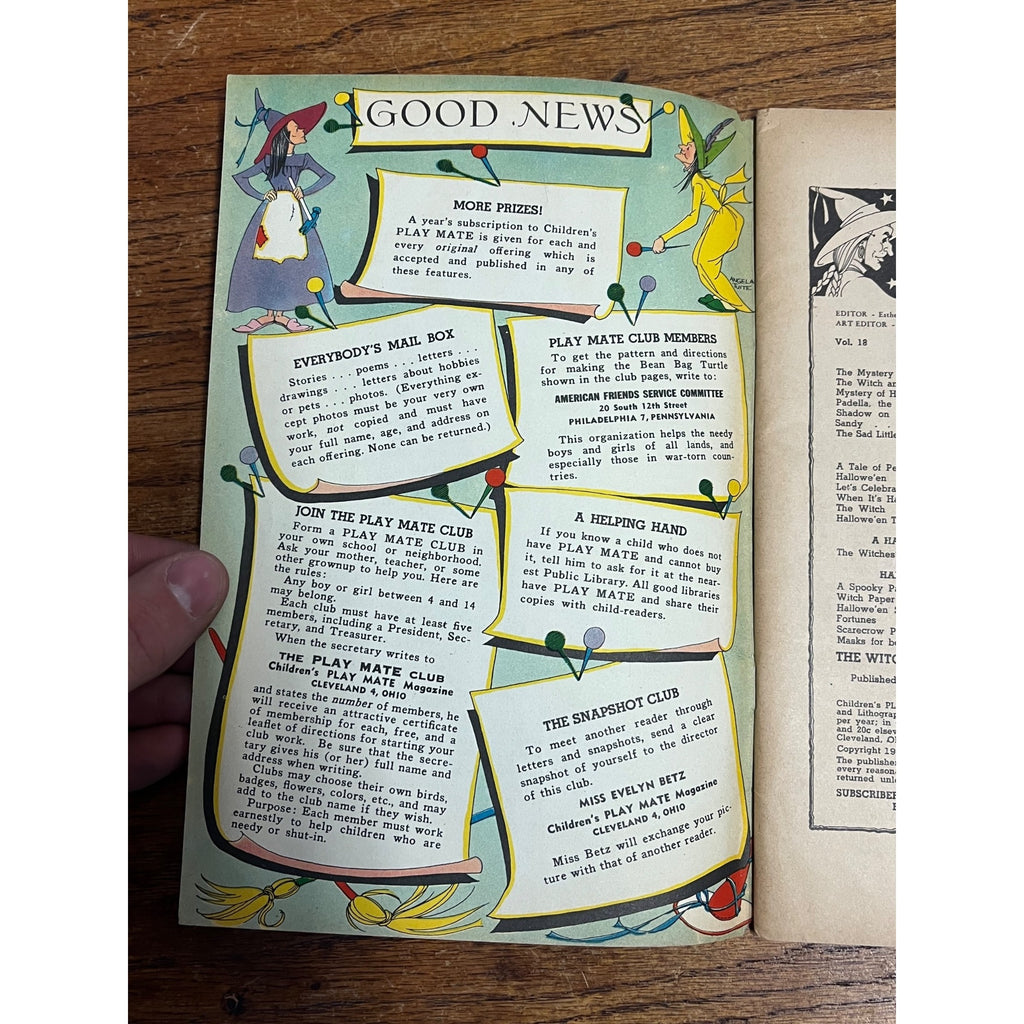 GOOD NEWS
MORE PRIZES!
A year's subscription to Children's
PLAY MATE is given for each and
every original offering which is
accepted and published in any of
these features.
EVERYBODY'S MAIL BOX
Stories . . . poems . . . letters . . .
drawings . . . letters about hobbies
or pets . . . photos. (Everything ex-
cept photos must be your very own
work, not copied and must have
your full name, age, and address on
each offering. None can be returned.)
PLAY MATE CLUB MEMBERS
To get the pattern and directions
for making the Bean Bag Turtle
shown in the club pages, write to:
AMERICAN FRIENDS SERVICE COMMITTEE
20 South 12th Street
PHILADELPHIA 7, PENNSYLVANIA
This organization helps the needy
boys and girls of all lands, and
especially those in war-torn coun-
tries.
JOIN THE PLAY MATE CLUB
Form a PLAY MATE CLUB in
your own school or neighborhood.
Ask your mother, teacher, or some
other grownup to help you. Here are
the rules:
Any boy or girl between 4 and 14
may belong.
Each club must have at least five
members, including a President, Sec-
retary, and Treasurer.
When the secretary writes to
THE PLAY MATE CLUB
Children's PLAY MATE Magazine
CLEVELAND 4, OHIO
and states the number of members, he
will receive an attractive certificate
of membership for each, free, and a
leaflet of directions for starting your
club work. Be sure that the secre-
tary gives his (or her) full name and
address when writing.
Clubs may choose their own birds,
badges, flowers, colors, etc., and may
add to the club name if they wish.
Purpose: Each member must work
earnestly to help children who are
needy or shut-in.
A HELPING HAND
If you know a child who does not
have PLAY MATE and cannot buy
it, tell him to ask for it at the near-
est Public Library. All good libraries
have PLAY MATE and share their
copies with child-readers.
THE SNAPSHOT CLUB
To meet another reader through
letters and snapshots, send a clear
snapshot of yourself to the director
of this club.
MISS EVELYN BETZ
Children's PLAY MATE Magazine
CLEVELAND 4, OHIO
Miss Betz will exchange your pic-
ture with that of another reader.
EDITOR - Esthe
ART EDITOR -
Vol. 18
The Mystery
The Witch an
Mystery of H
Padella, the
Shadow on
Sandy . .
The Sad Little
A Tale of Pe
Hallowe'en
Let's Celebra
When It's Ha
The Witch
Hallowe'en T
A HA
The Witches'
HA
A Spooky Pa
Witch Paper
Hallowe'en S
Fortunes
Scarecrow P
Masks for b
THE WITC
Published
Children's PL
and Lithograp
per year; in
and 20c elsew
Cleveland, O
Copyright 19
The publishe
every reason
returned unl
SUBSCRIBER